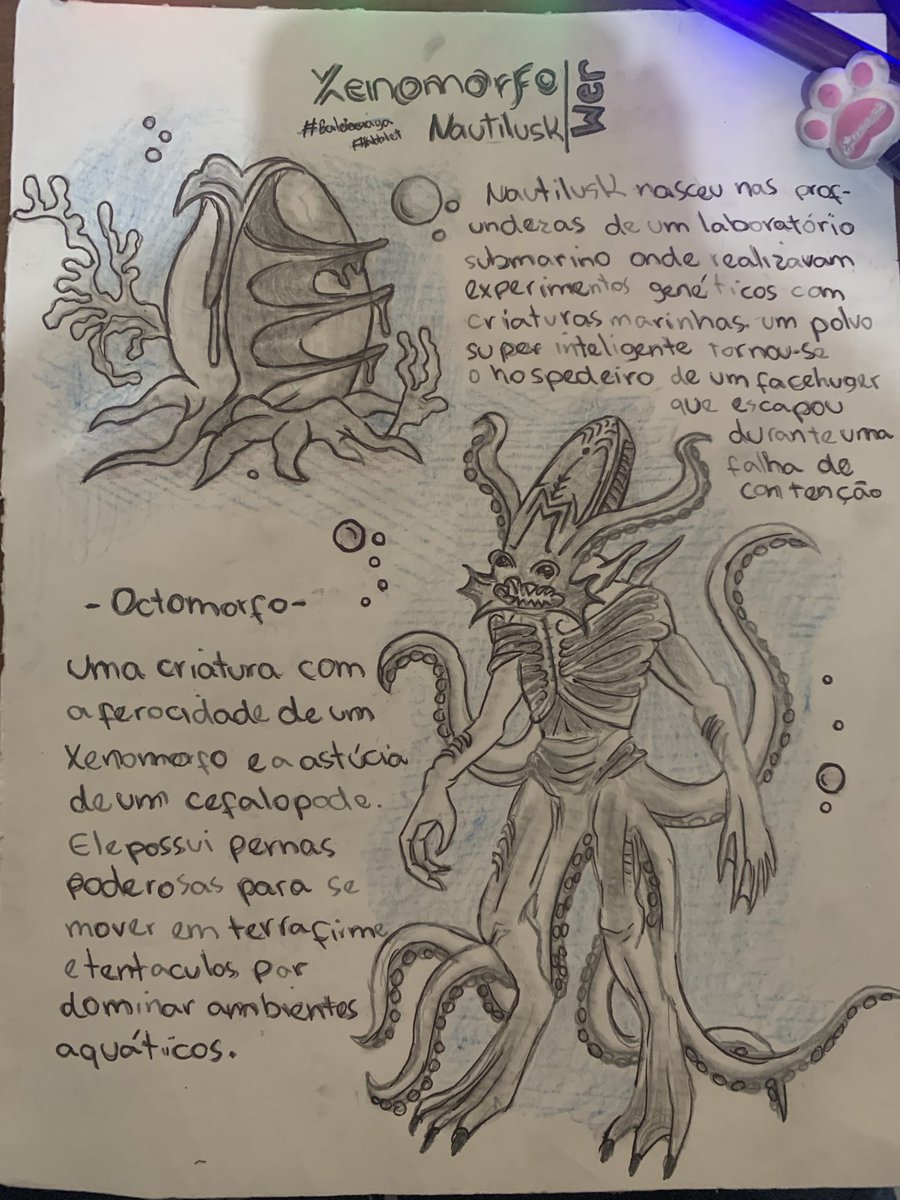 Xenomorfo
Nautilusk
Wer
Nautilusk nasceu nas prof-
undezas de um laboratório
submarino onde realizavam
experimentos genéticos com
criaturas marinhas. um polvo
super inteligente tornou-se
o hospedeiro de um facehuger
que escapou
durante uma
falha de
contenção
- Octomorfo -
Uma criatura com
a ferocidade de um
Xenomorfo e a astúcia
de um cefalopode.
Ele possui pernas
poderosas para se
mover em terra firme
e tentaculos por
dominar ambientes
aquáticos.